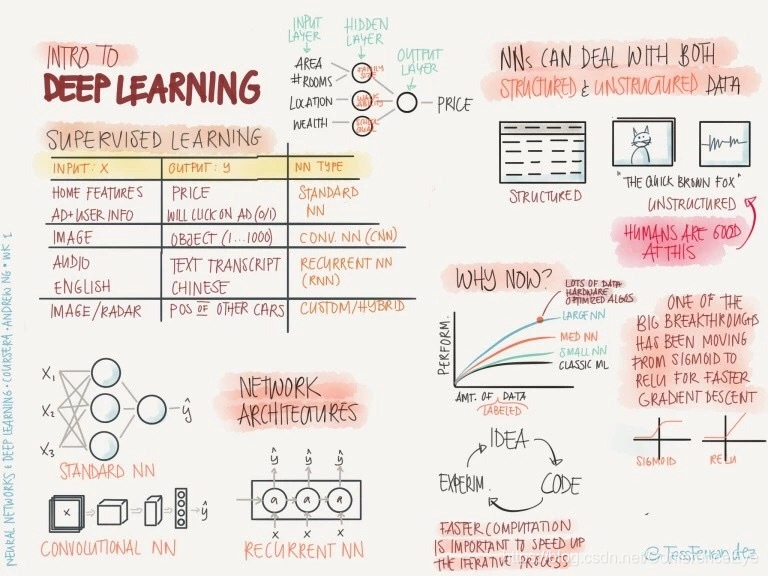 INTRO TO
DEEP LEARNING
INPUT LAYER
HIDDEN LAYER
OUTPUT LAYER
AREA
#ROOMS
LOCATION
WEALTH
PRICE
SUPERVISED LEARNING
INPUT: X OUTPUT: y NN TYPE
HOME FEATURES PRICE STANDARD
AD+USER INFO WILL CLICK ON AD (0/1) NN
IMAGE OBJECT (1...1000) CONV. NN (CNN)
AUDIO TEXT TRANSCRIPT RECURRENT NN
ENGLISH CHINESE (RNN)
IMAGE/RADAR POS OF OTHER CARS CUSTOM/HYBRID
NNs CAN DEAL WITH BOTH
STRUCTURED & UNSTRUCTURED DATA
STRUCTURED
"THE QUICK BROWN FOX"
UNSTRUCTURED
HUMANS ARE GOOD
AT THIS
WHY NOW?
LOTS OF DATA
HARDWARE
OPTIMIZED ALGOS
LARGE NN
MED NN
SMALL NN
CLASSIC ML
PERFORM.
AMT. OF DATA
LABELED
ONE OF THE
BIG BREAKTHROUGHS
HAS BEEN MOVING
FROM SIGMOID TO
RELU FOR FASTER
GRADIENT DESCENT
SIGMOID
RELU
X1
X2
X3
ŷ
STANDARD NN
NETWORK
ARCHITECTURES
X
ŷ
CONVOLUTIONAL NN
ŷ ŷ ŷ
a a a
x x x
RECURRENT NN
IDEA
CODE
EXPERIM.
FASTER COMPUTATION
IS IMPORTANT TO SPEED UP
THE ITERATIVE PROCESS
@TessFerrandez
NEURAL NETWORKS & DEEP LEARNING · COURSERA · ANDREW NG · WK 1